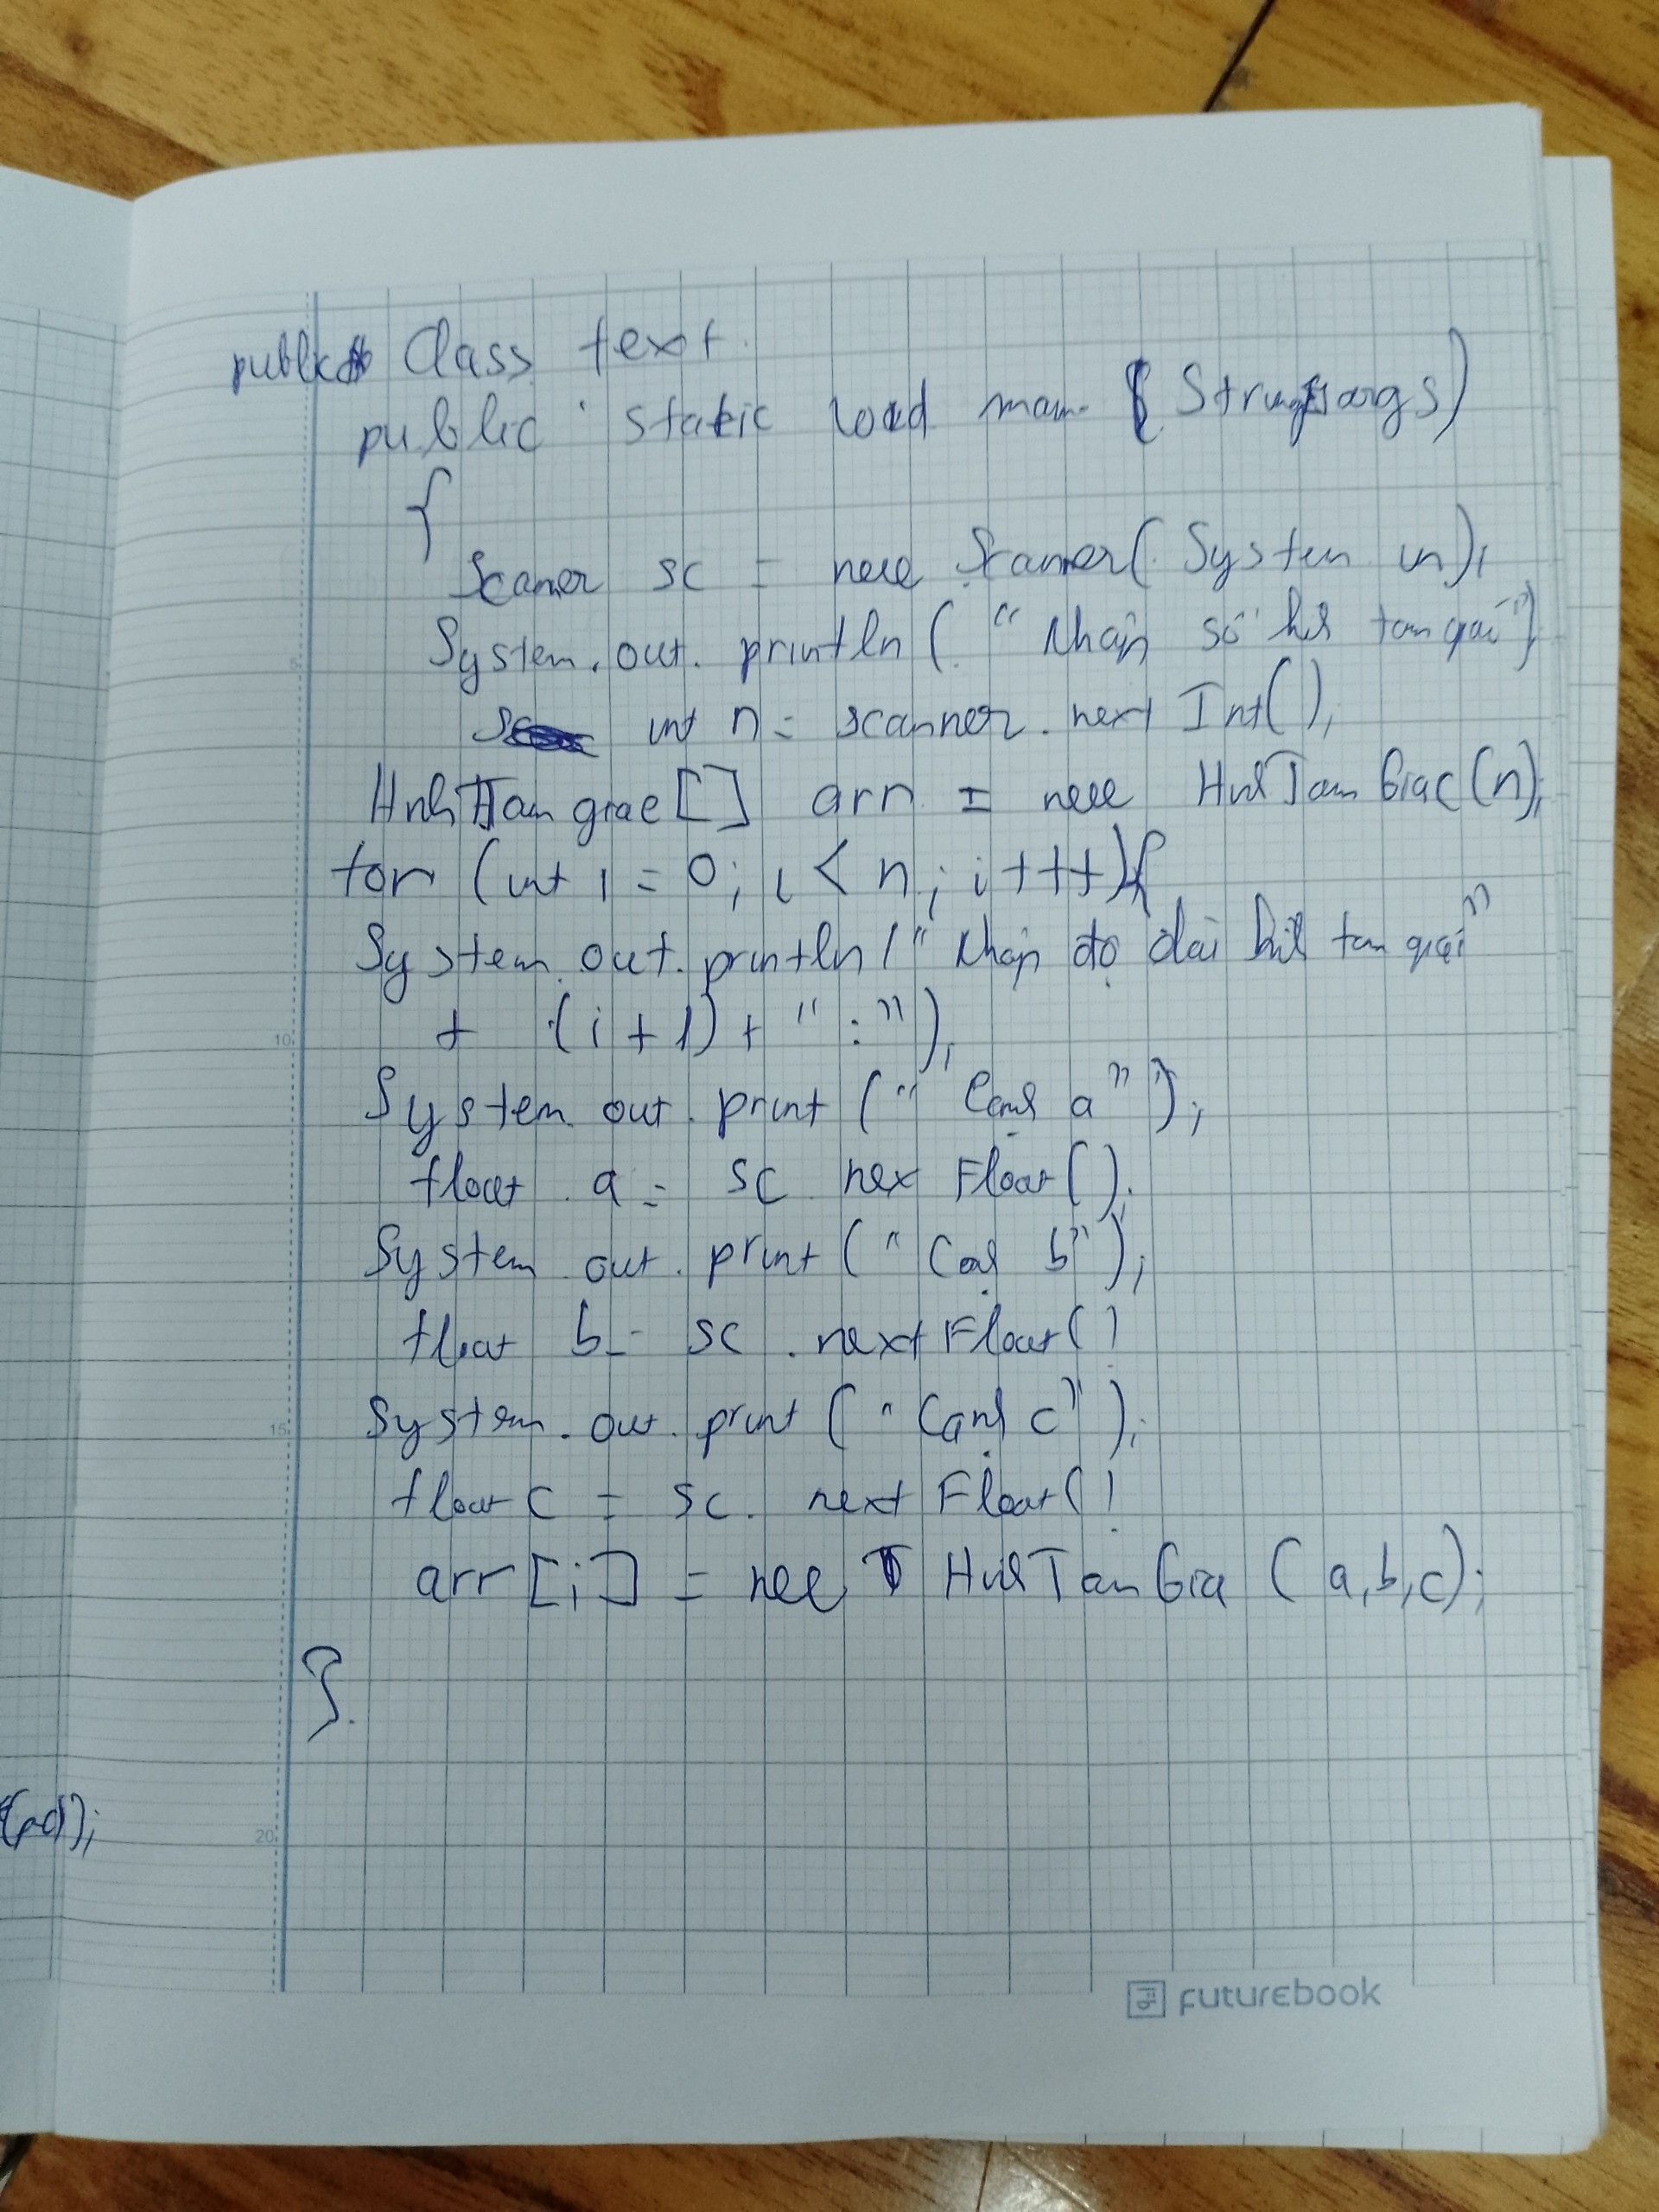 public Class text.
public static void main (String[] args)
{
Scanner sc = new Scanner(System in);
System.out.println("Nhập số hình tam giác")
int n = scanner.next Int();
HinhTam giac[] arr = new HinhTam Giac(n);
for (int i = 0; i < n; i+++){
System.out.println("Nhập độ dài hình tam giác"
+ (i+1) + ":");
System out.print("Cạnh a");
float a = sc nex Float();
System out.print("Cạnh b");
float b = sc.nextFloat()
System.out.print("Cạnh c");
float c = sc. next Float()
arr[i] = new HinhTam Gia (a,b,c);
}.
5
10
15
20
futurebook